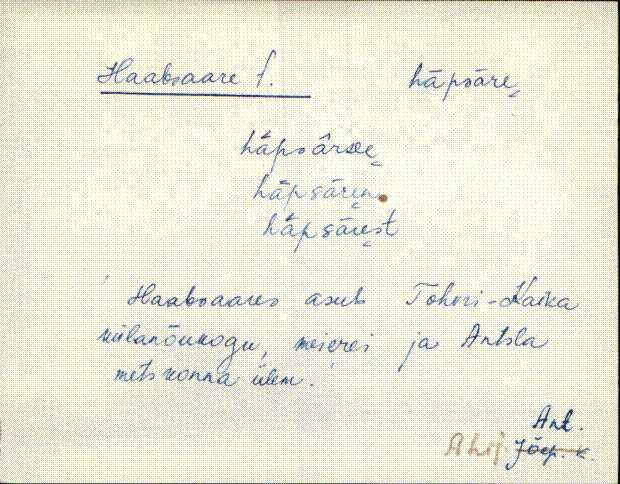 Haabsaare t. hāpsāre̬
hāpsârse̬
hāpsāre̬n
hāpsāre̬st
Haabsaares asub Tohvri-Kaika
külanõukogu, meierei ja Antsla
metskonna ülem.
Ant.
Ahij. Jõep. k.